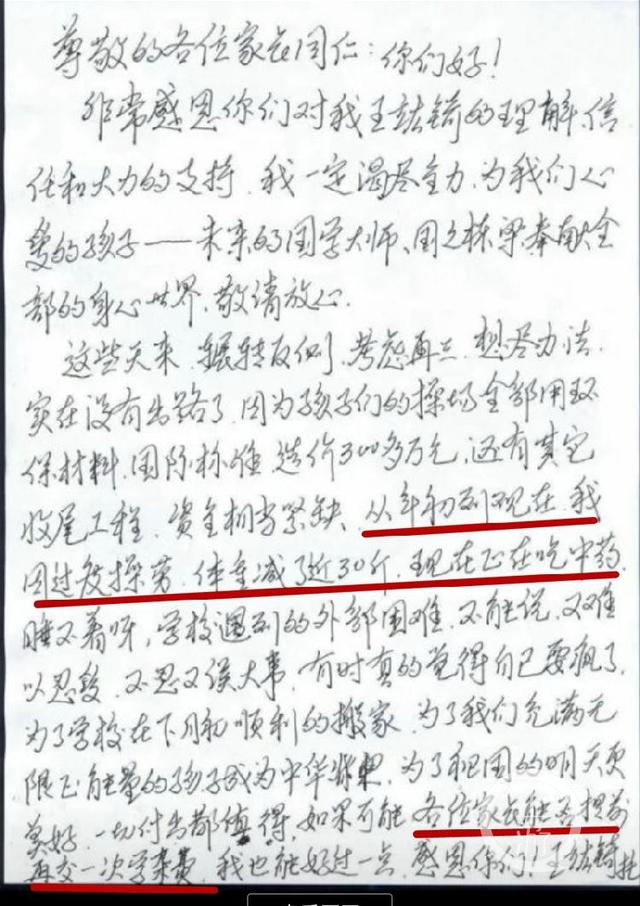 尊敬的各位家长同仁：你们好！
非常感恩你们对我王喆锜的理解、信
任和大力的支持，我一定竭尽全力，为我们心
爱的孩子——未来的国学大师、国之栋梁奉献全
部的身心世界，敬请放心．
这些天来，辗转反侧，考虑再三，想尽办法，
实在没有出路了，因为孩子们的操场全部用环
保材料，国际标准，造价300多万元，还有其它
收尾工程，资金相当紧缺，从年初到现在，我
因过度操劳，体重减了近30斤，现在正在吃中药，
睡不着呀，学校遇到的外部困难，不能说，又难
以忍受，不忍又误大事，有时真的觉得自己要疯了，
为了学校在下月初顺利的搬家，为了我们充满无
限正能量的孩子成为中华栋梁，为了祖国的明天更
美好，一切付出都值得，如果可能，各位家长能否提前
再交一次学杂费，我也能好过一点，感恩你们！王喆锜